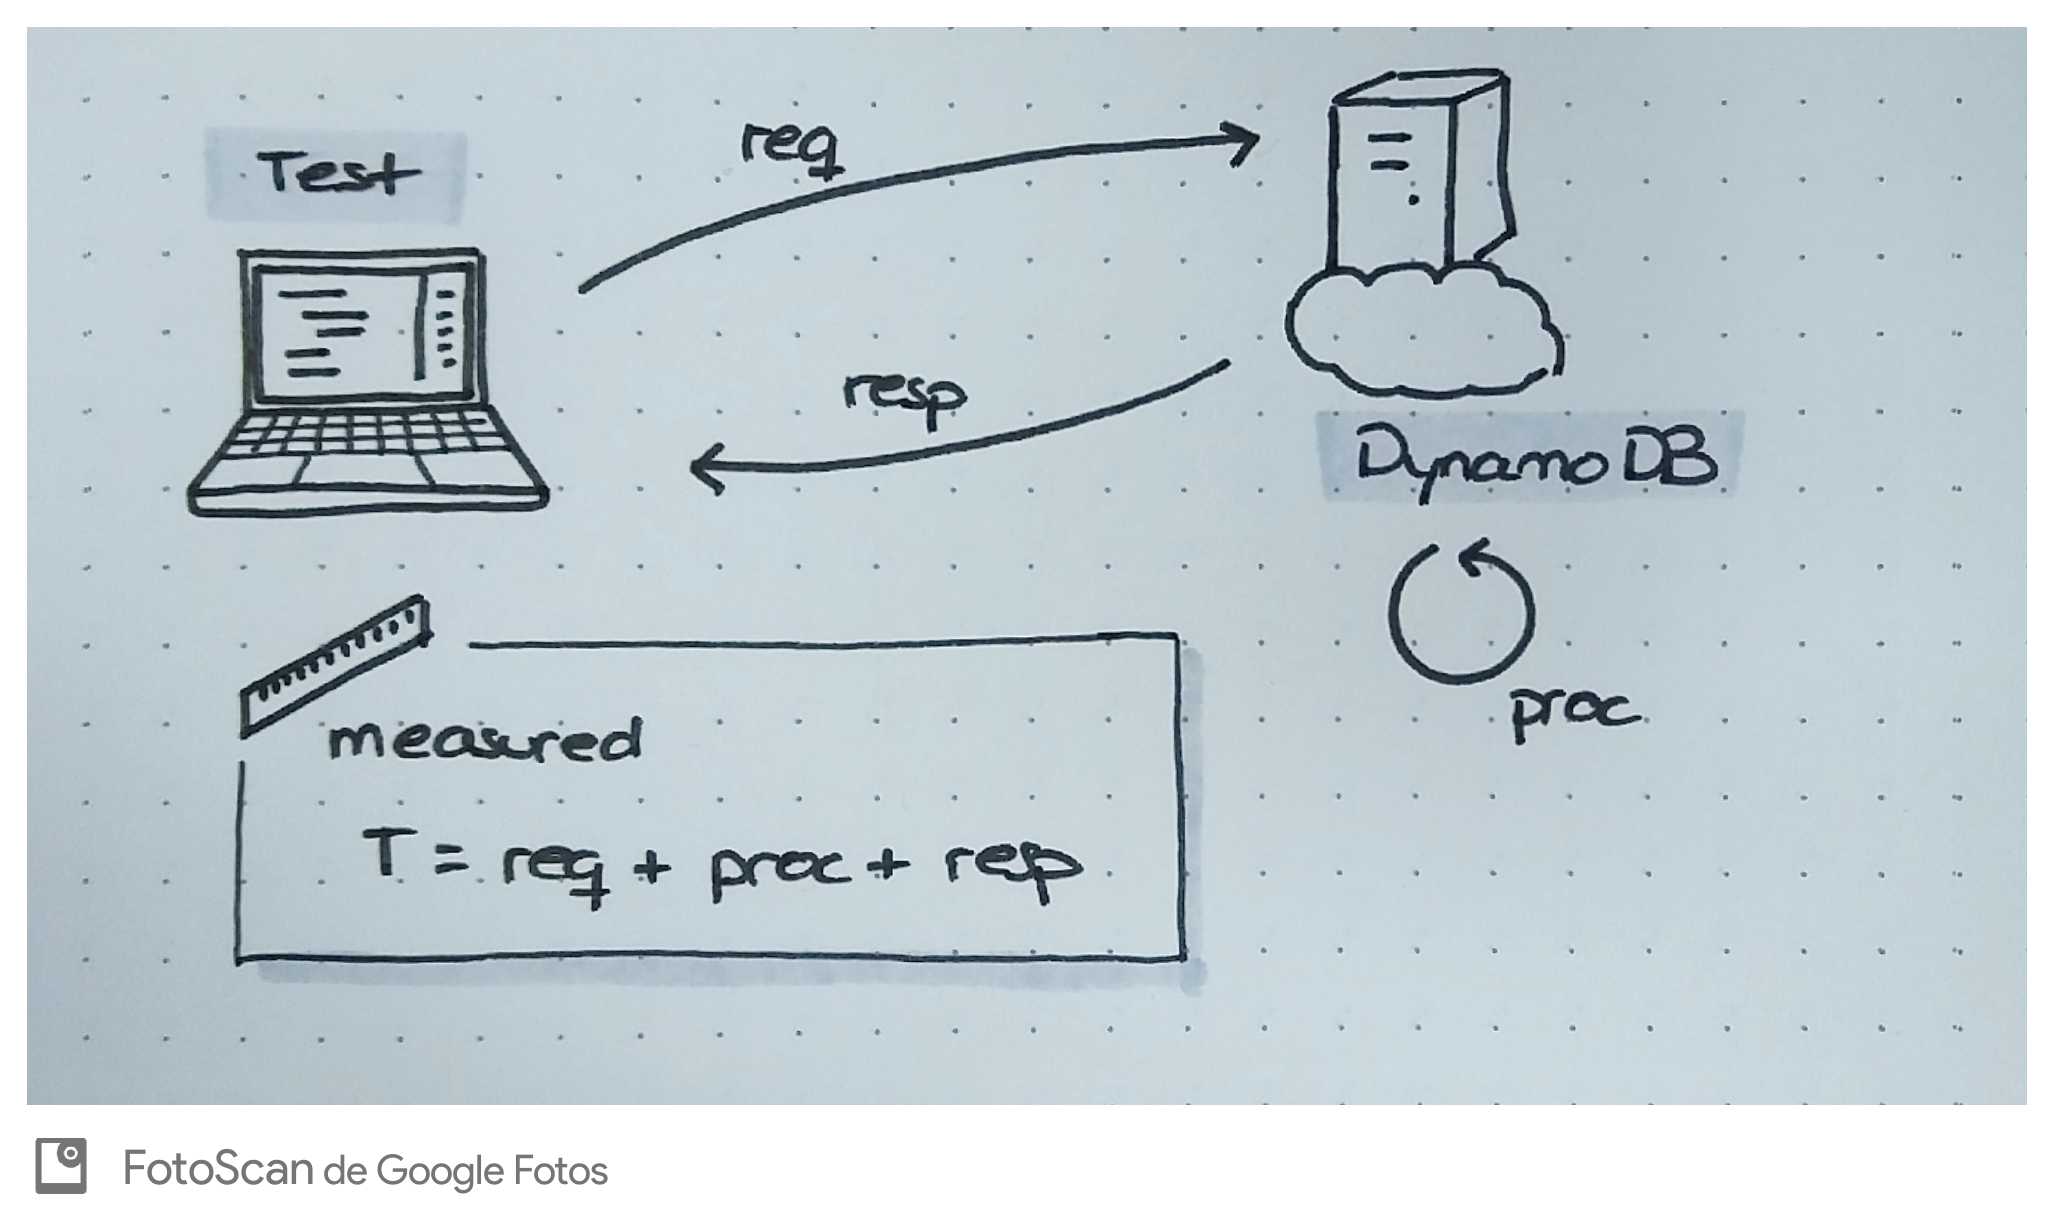 Test
req
resp
Dynamo DB
proc
measured
T = req + proc + resp
FotoScan de Google Fotos